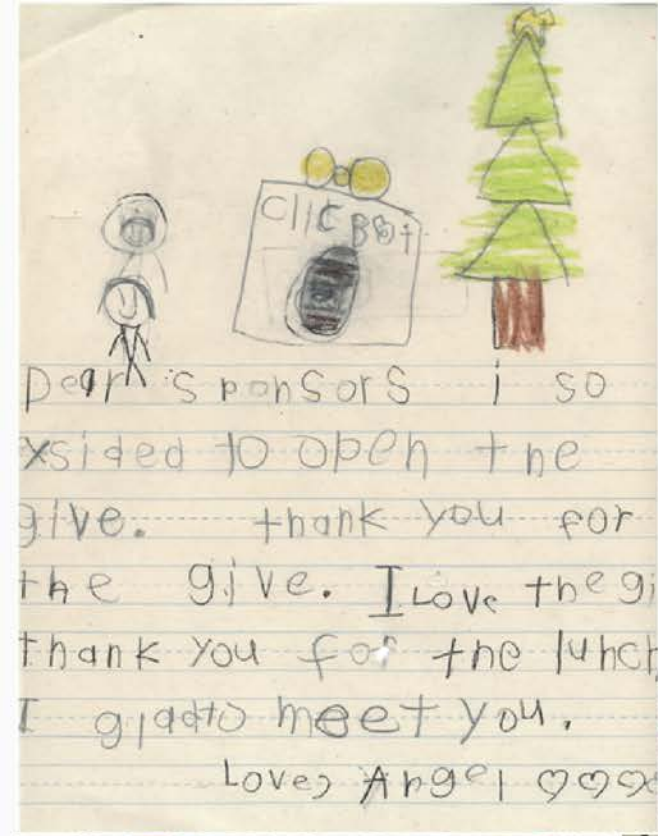 Clic Bot
Dear Sponsors i so
xsided to open the
give. thank you for
the give. I Love the gi
thank you for the lunch
I glad to meet you.
Love, Angel ♡♡♡